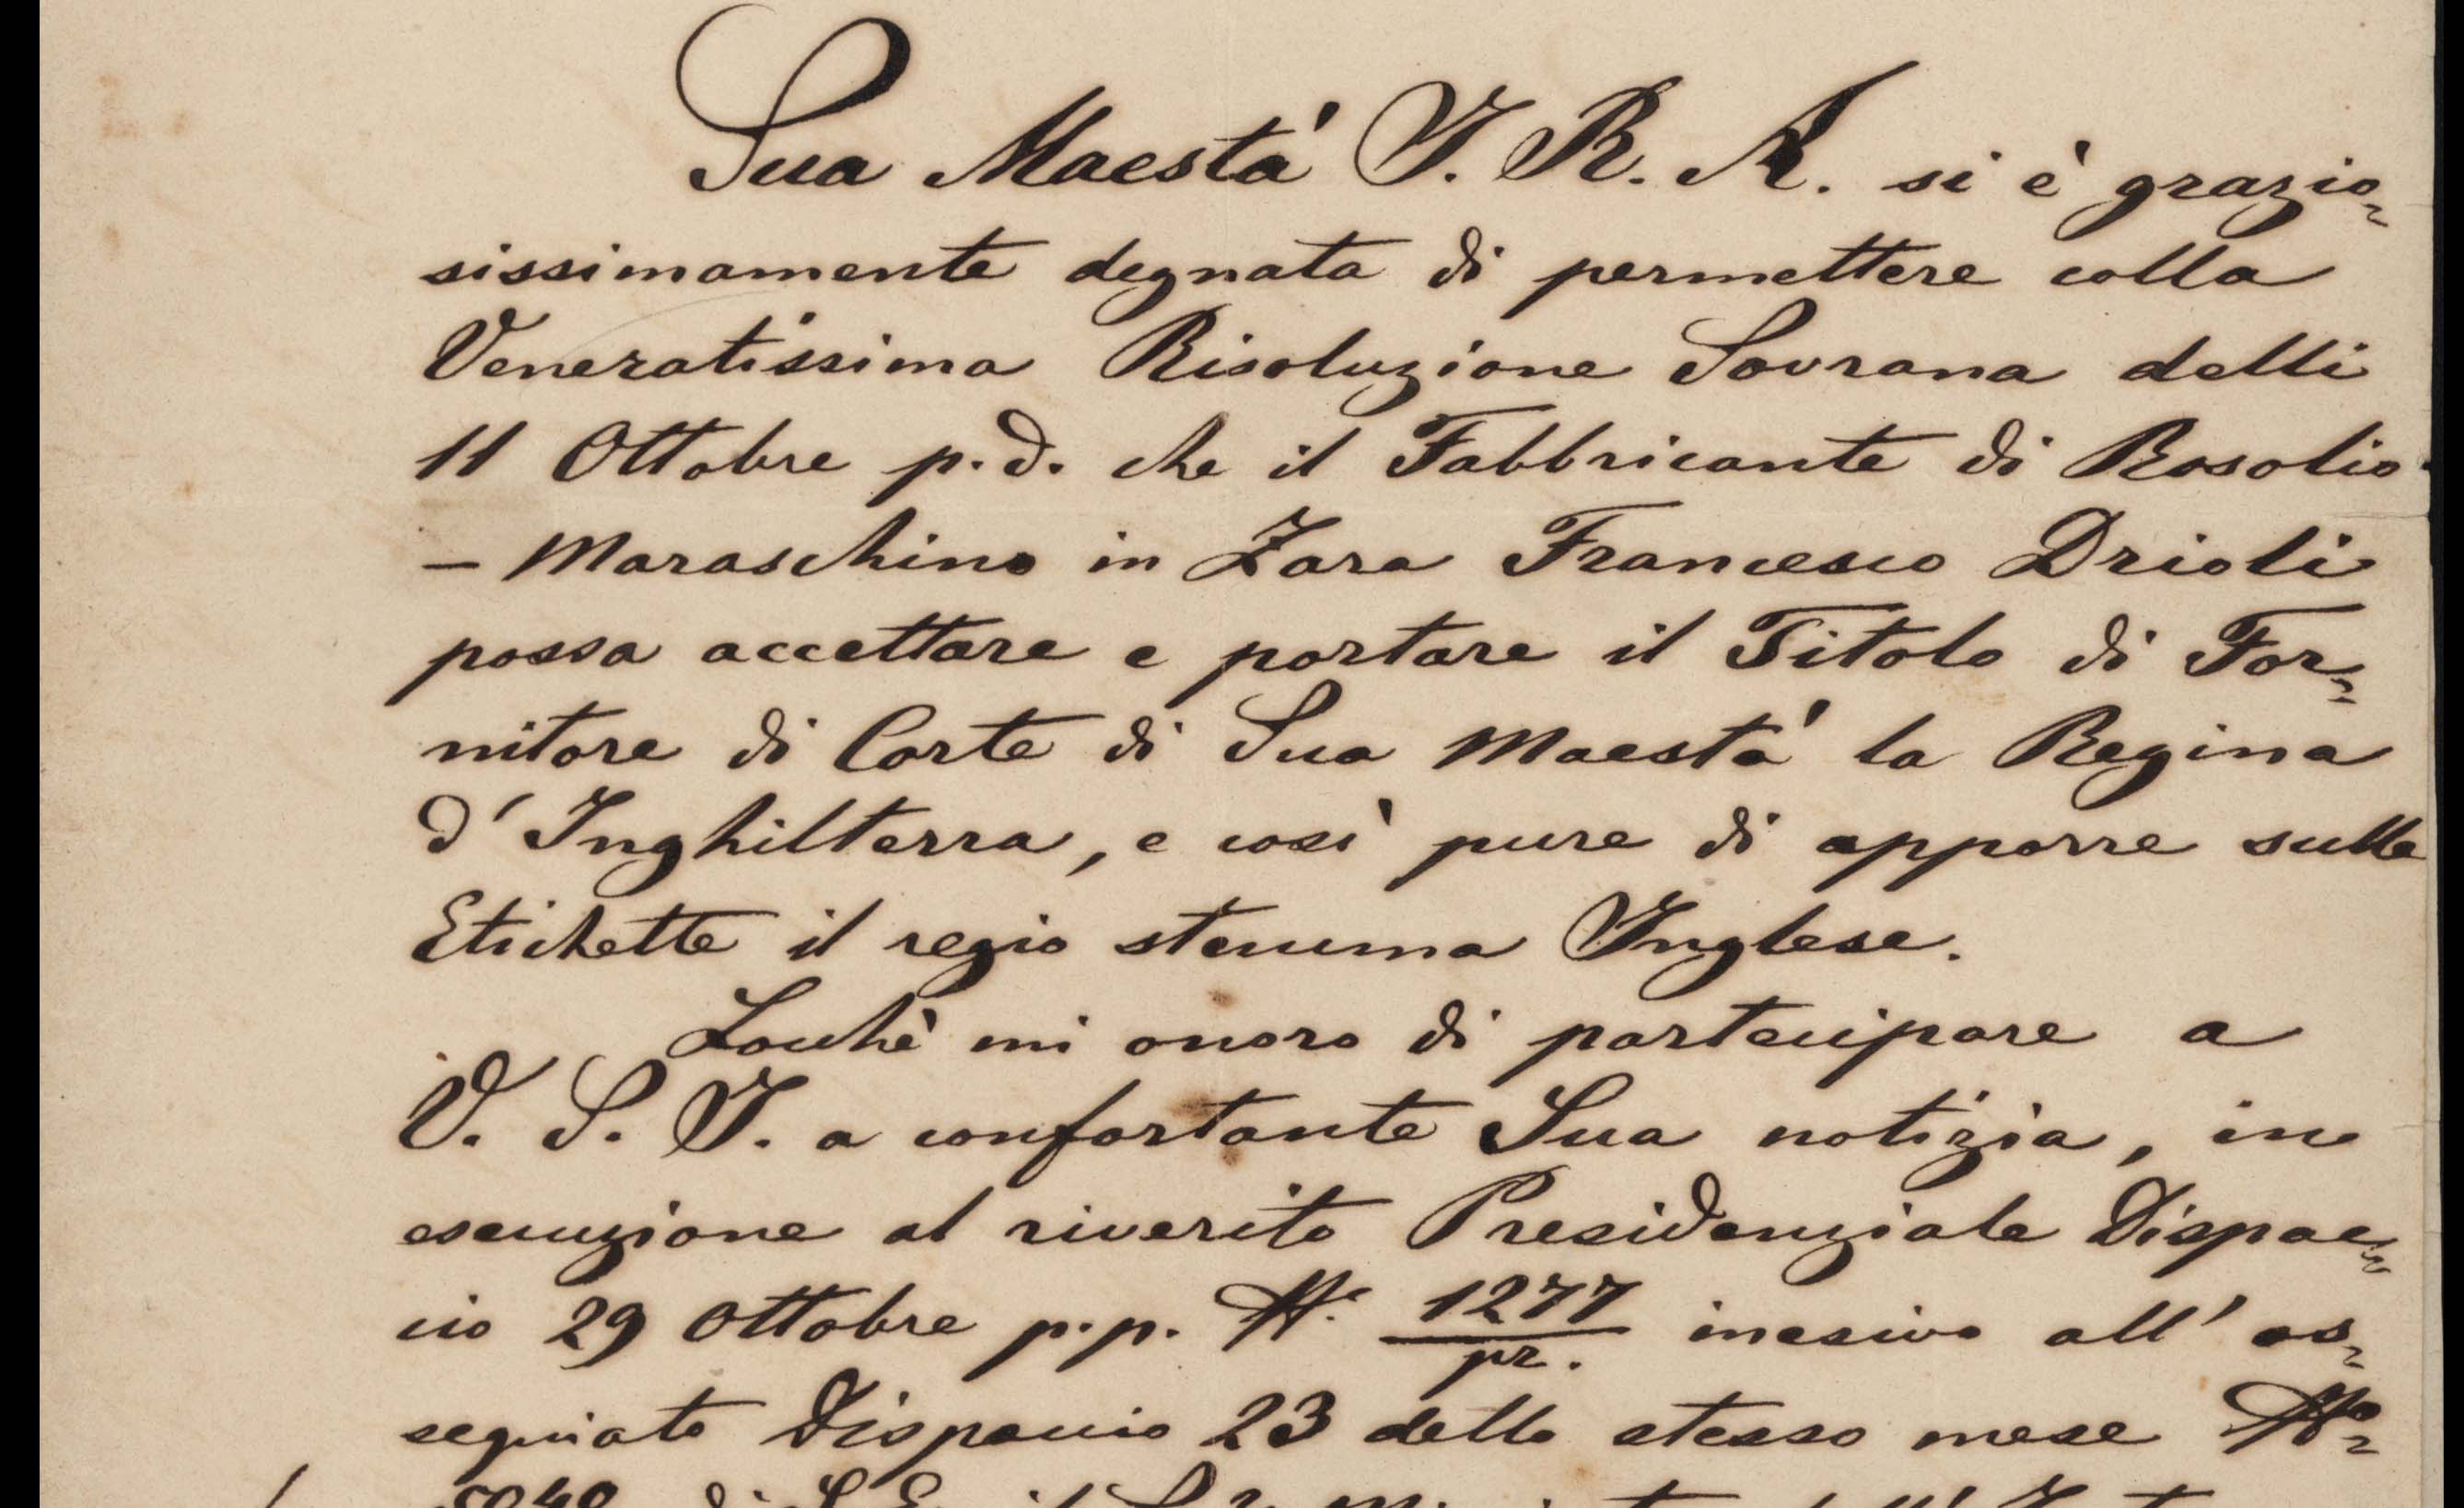 Sua Maestà I. R. A. si è grazio=
sissimamente degnata di permettere colla
Veneratissima Risoluzione Sovrana delli
11 Ottobre p.d. che il Fabbricante di Rosolio
- Maraschino in Zara Francesco Drioli
possa accettare e portare il Titolo di For=
nitore di Corte di Sua Maestà la Regina
d'Inghilterra, e così pure di apporre sulle
Etichette il regio stemma Inglese.
Locchè mi onoro di partecipare a
V. S. I. a confortante Sua notizia, in
esecuzione al riverito Presidenziale Dispac=
cio 29 Ottobre p.p. N.º 1277/pr. inesivo all'os=
sequiato Dispaccio 23 dello stesso mese Nº=